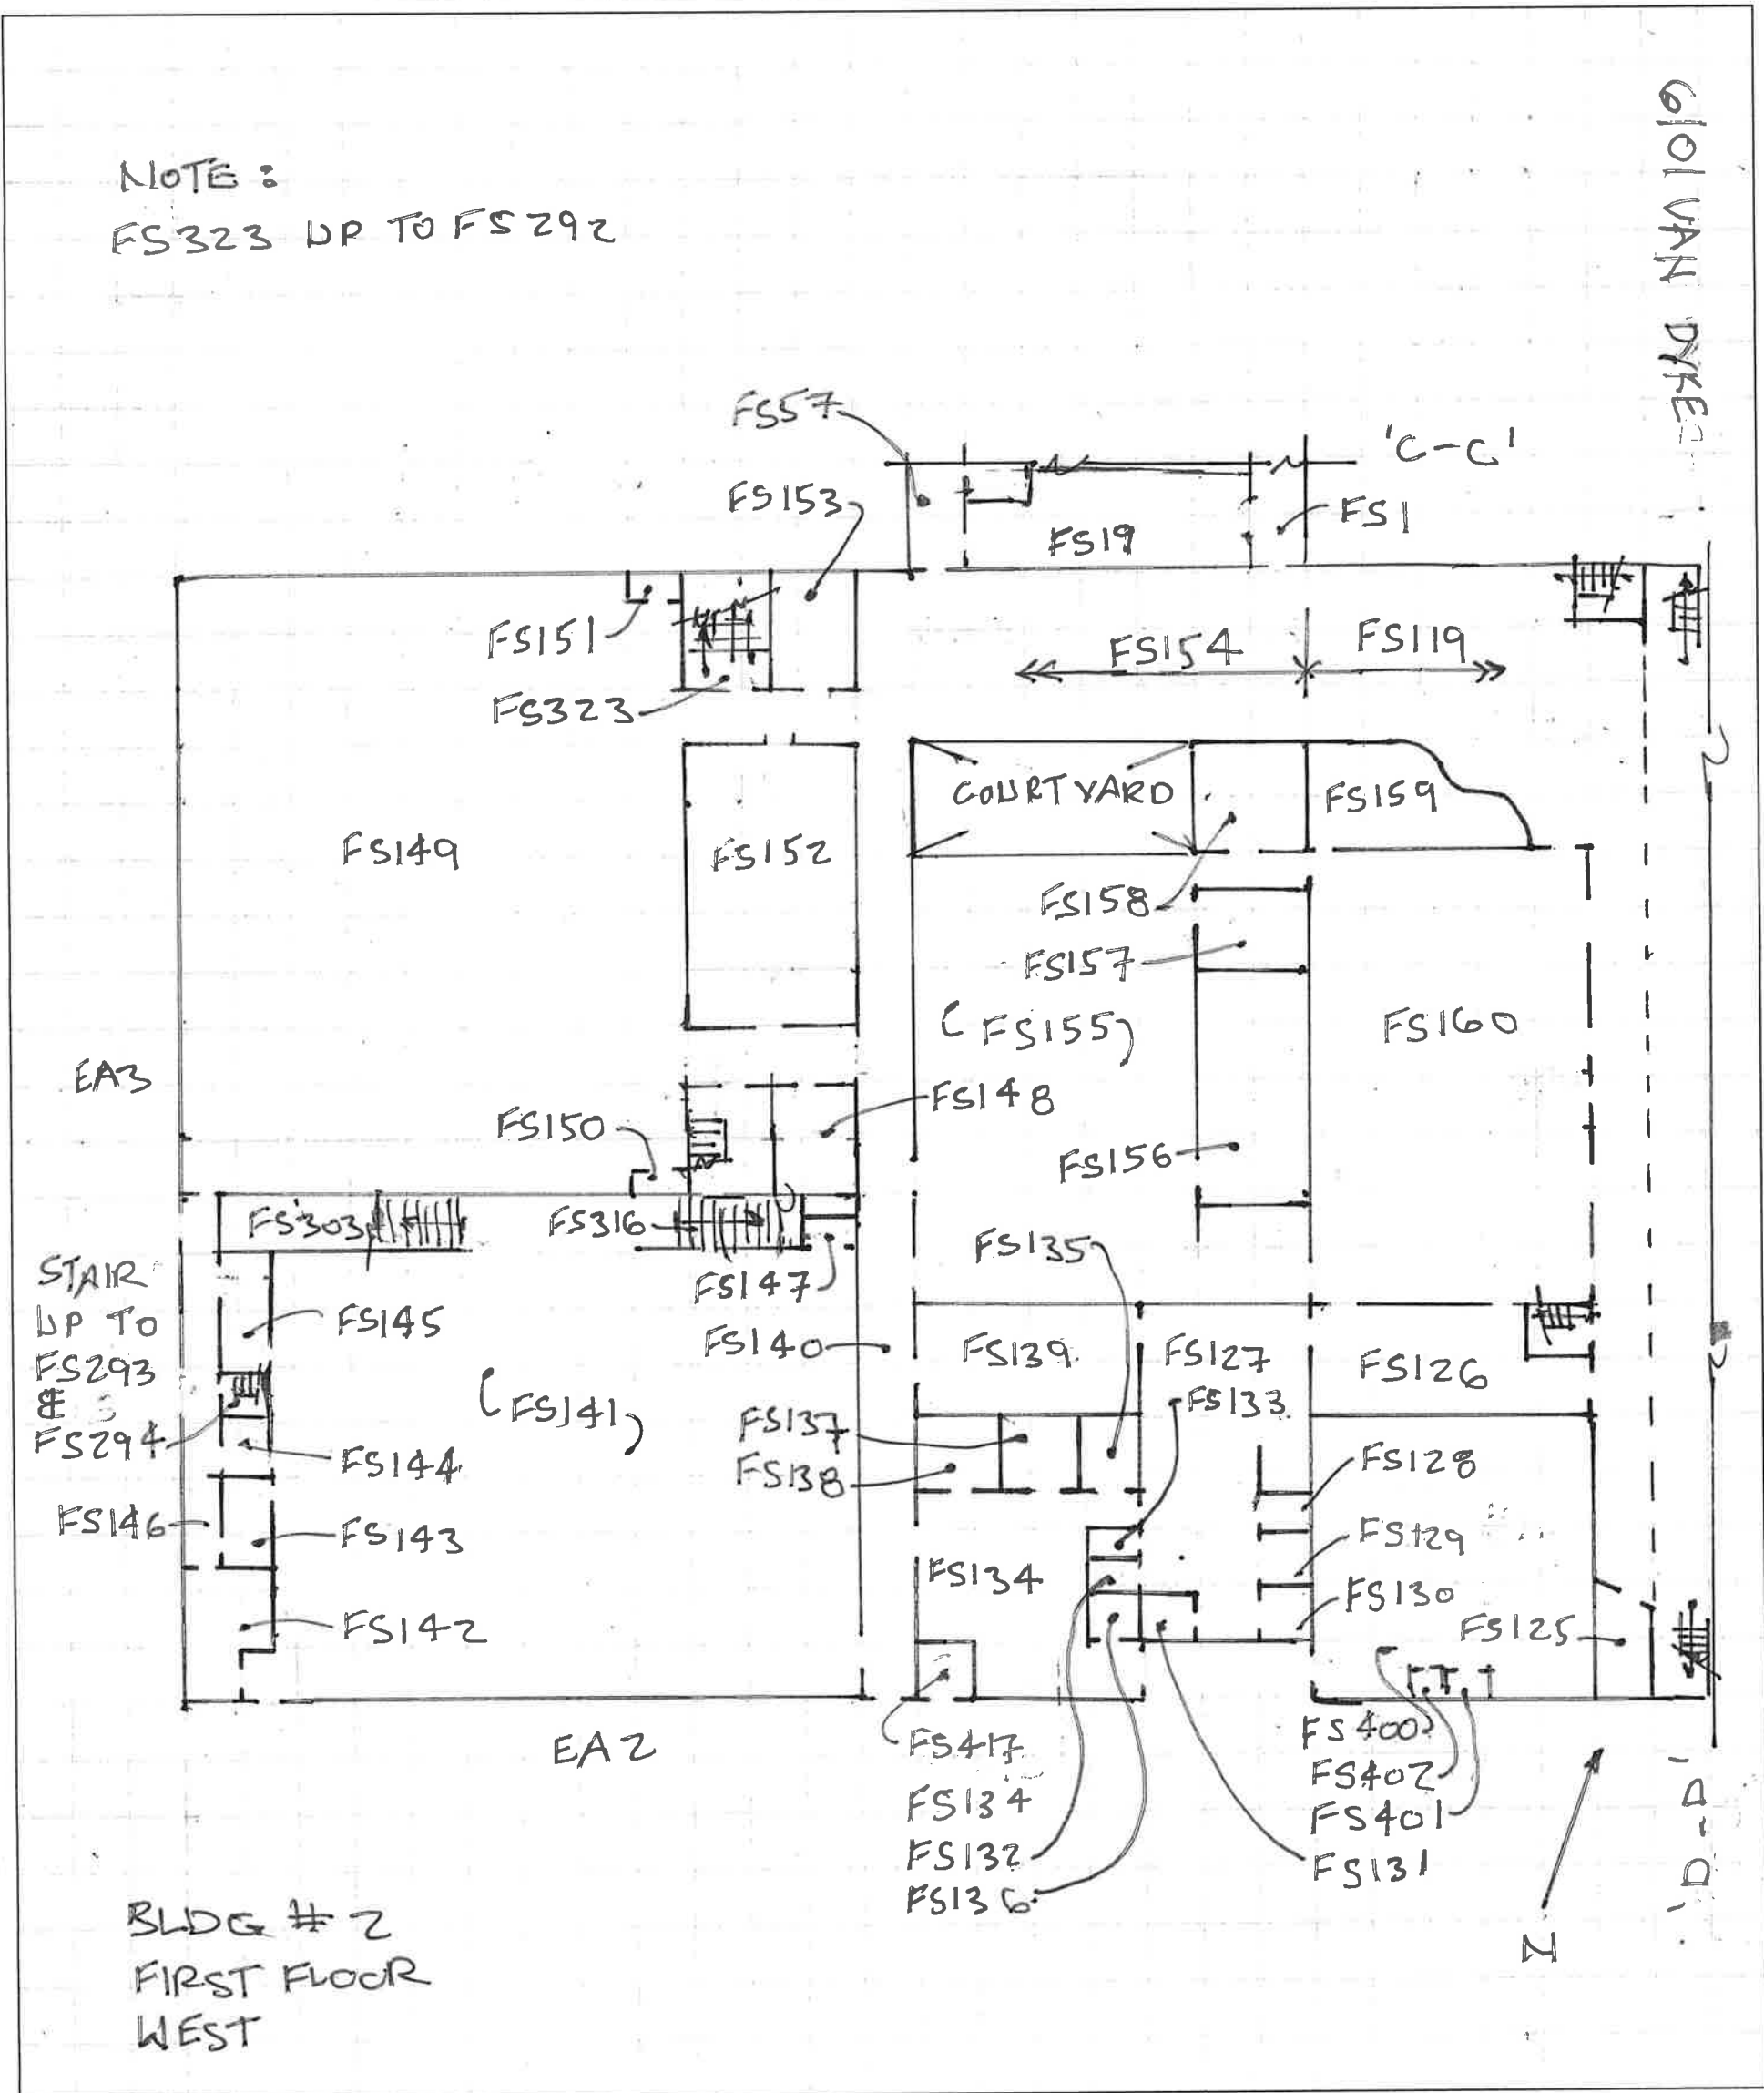 6101 VAN DYKE
NOTE :
FS323 UP TO FS292
FS57
'C-C'
FS153
FS1
FS19
FS151
FS154
FS119
FS323
COURTYARD
FS159
FS149
FS152
FS158
FS157
FS155
FS160
EA3
FS148
FS150
FS156
FS303
FS316
FS135
FS147
STAIR
UP TO
FS293
&
FS294
FS145
FS140
FS139
FS127
FS126
FS141
FS133
FS137
FS138
FS144
FS128
FS146
FS143
FS129
FS134
FS130
FS142
FS125
EA2
FS417
FS134
FS132
FS136
FS400
FS402
FS401
FS131
'D-D'
N
BLDG # 2
FIRST FLOOR
WEST